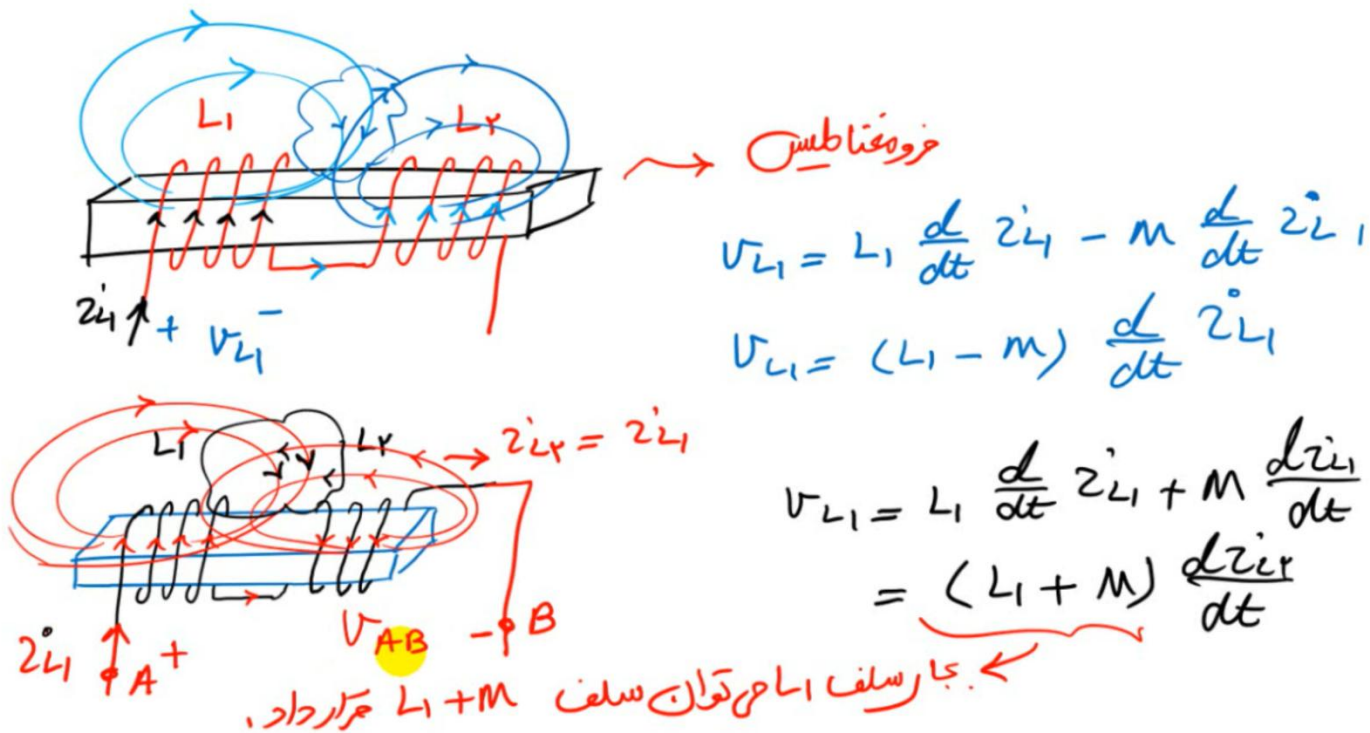 L₁
L۲
فرومغناطیس
i_L₁
+ v_L₁ −
v_L₁ = L₁ d/dt i_L₁ − M d/dt i_L₁
v_L₁ = (L₁ − M) d/dt i_L₁
L₁
L۲
i_L۲ = i_L₁
v_L₁ = L₁ d/dt i_L₁ + M di_L₁/dt
= (L₁ + M) di_L۲/dt
i_L₁
A +
V_AB
− B
بجای سلف L₁ می توان سلف L₁ + M قرار داد.